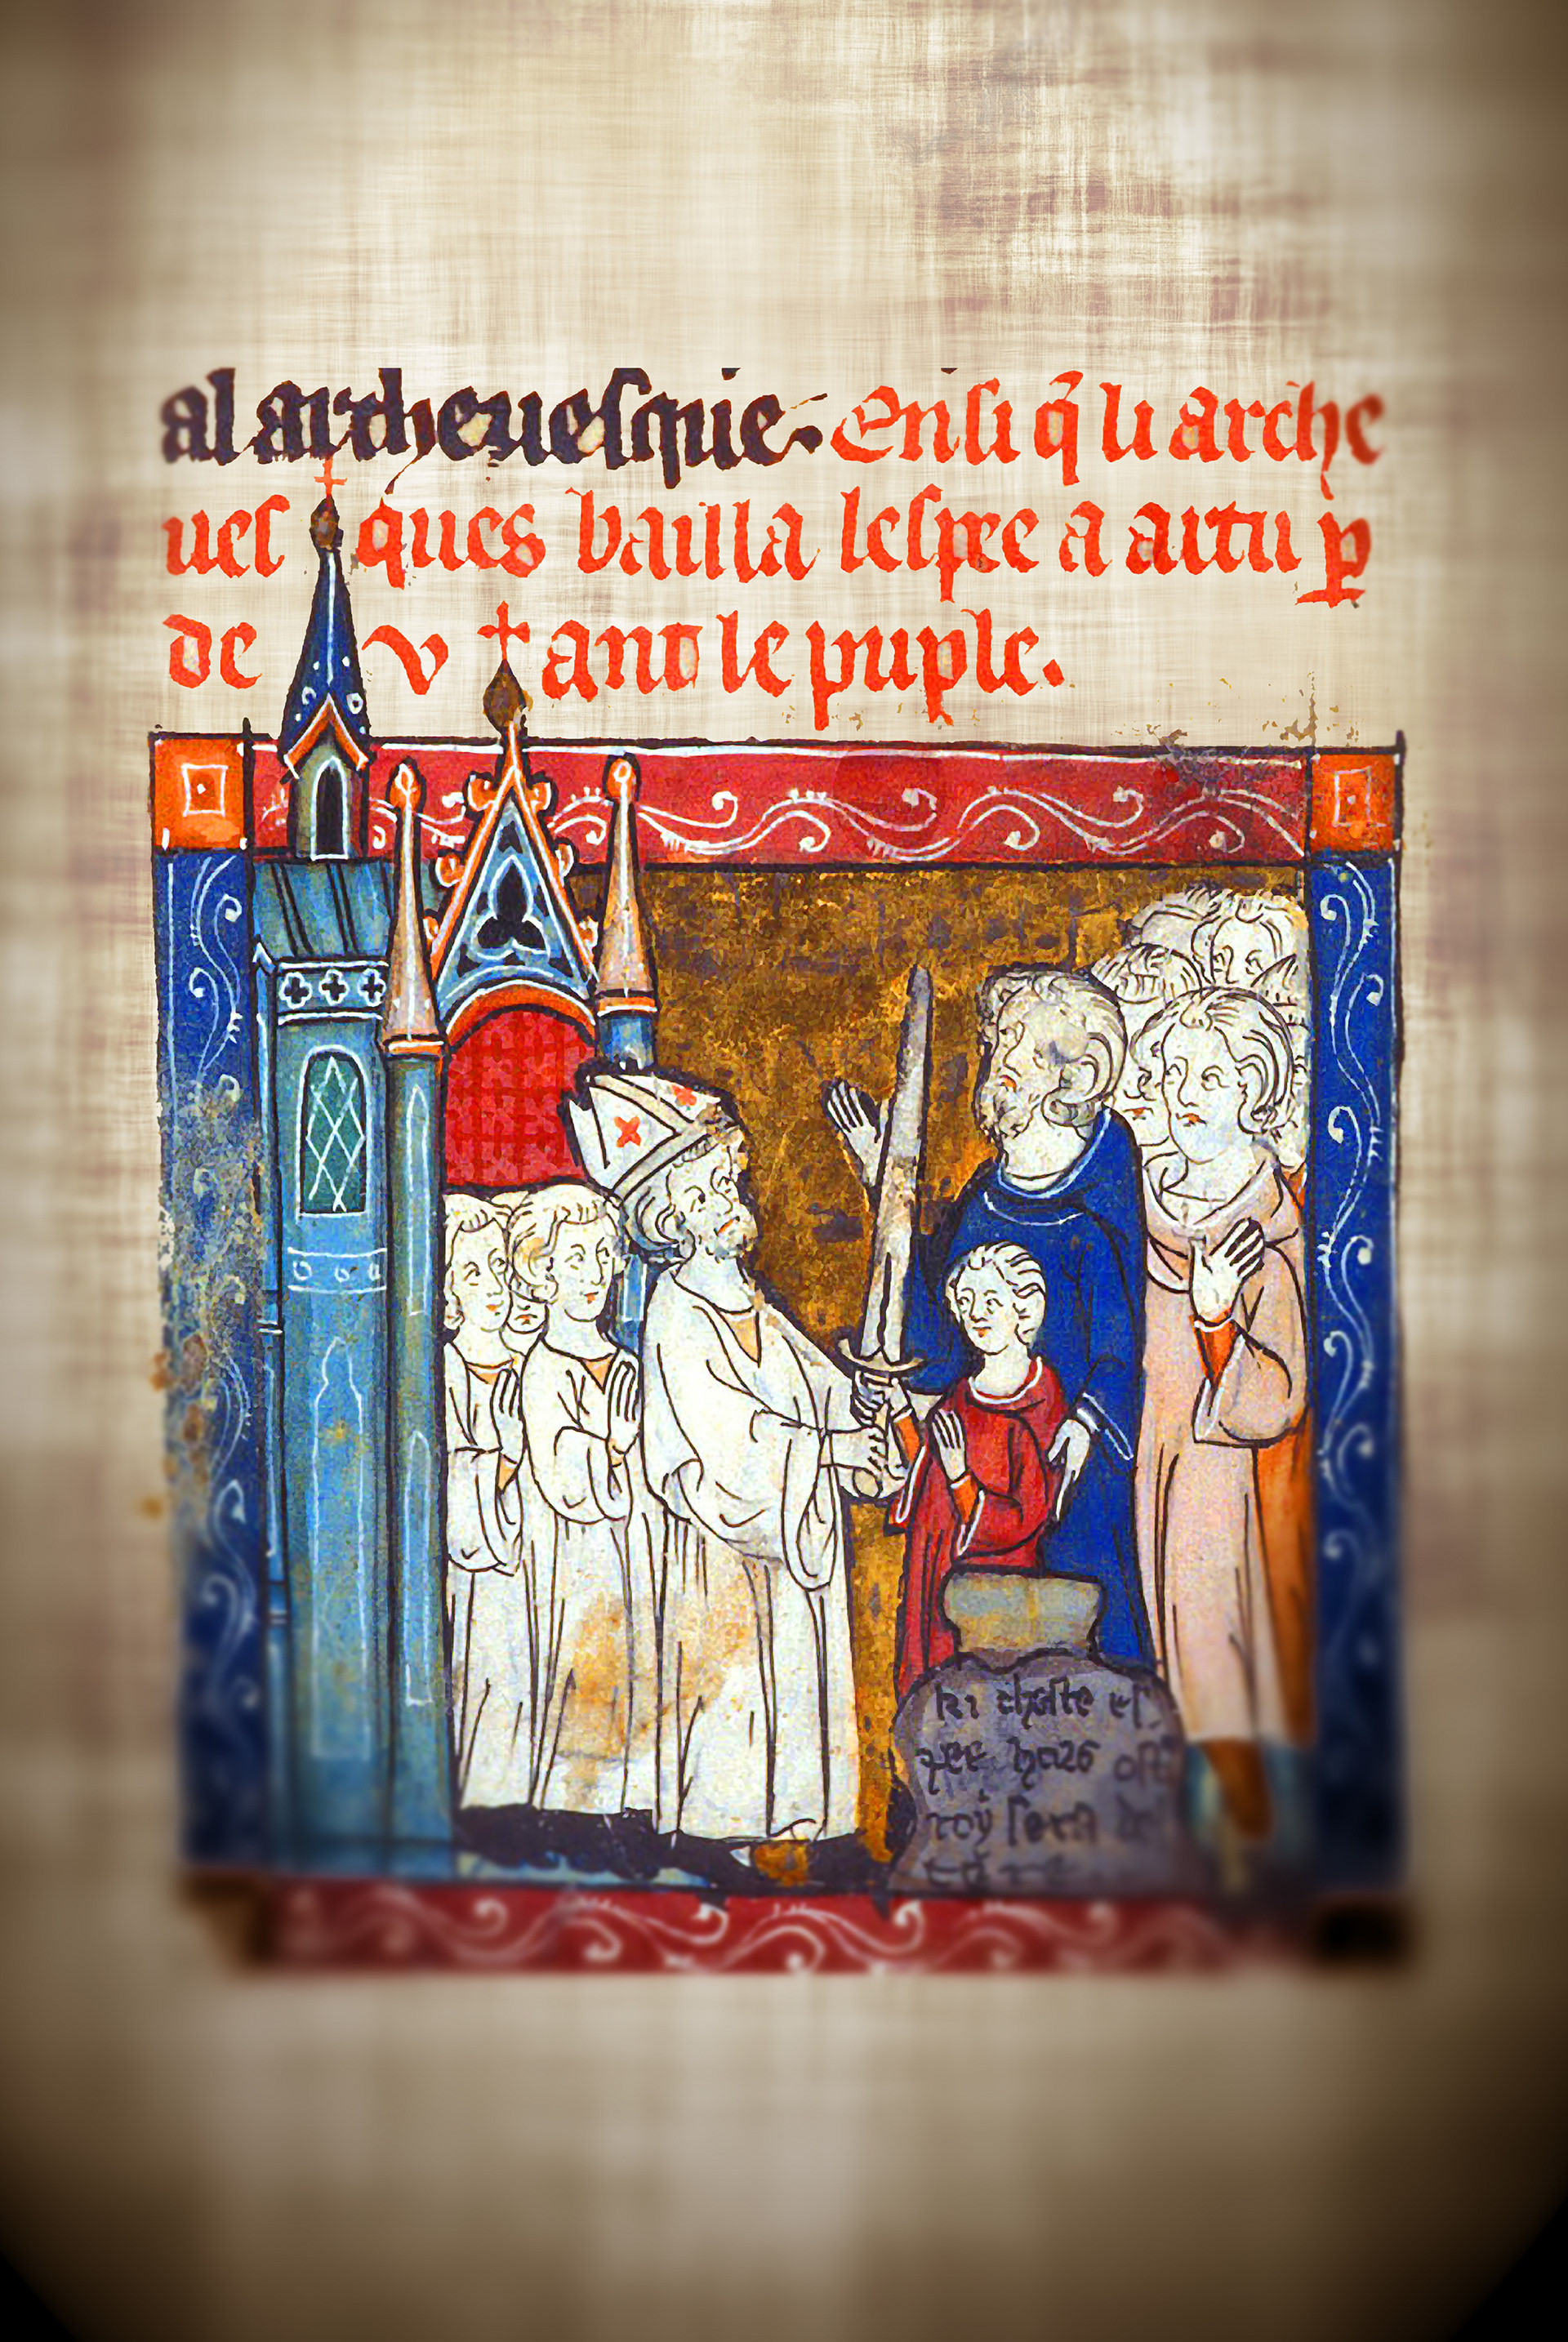 al archeuesquie. Ensi q̃ li arche
uesques bailla lespee a artu ꝑ
deuant le puple.
ki choste es
pee hors